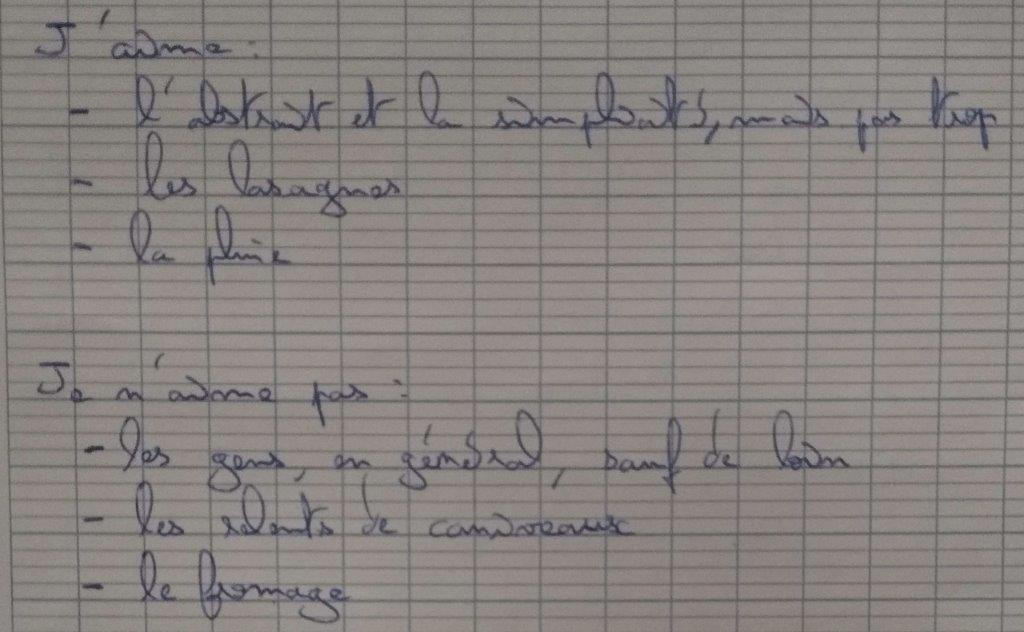 J'aime :
- l'abstrait et la simplicité, mais pas trop
- les lasagnes
- la pluie
Je n'aime pas :
- les gens, en général, sauf de loin
- les relents de caniveaux
- le fromage